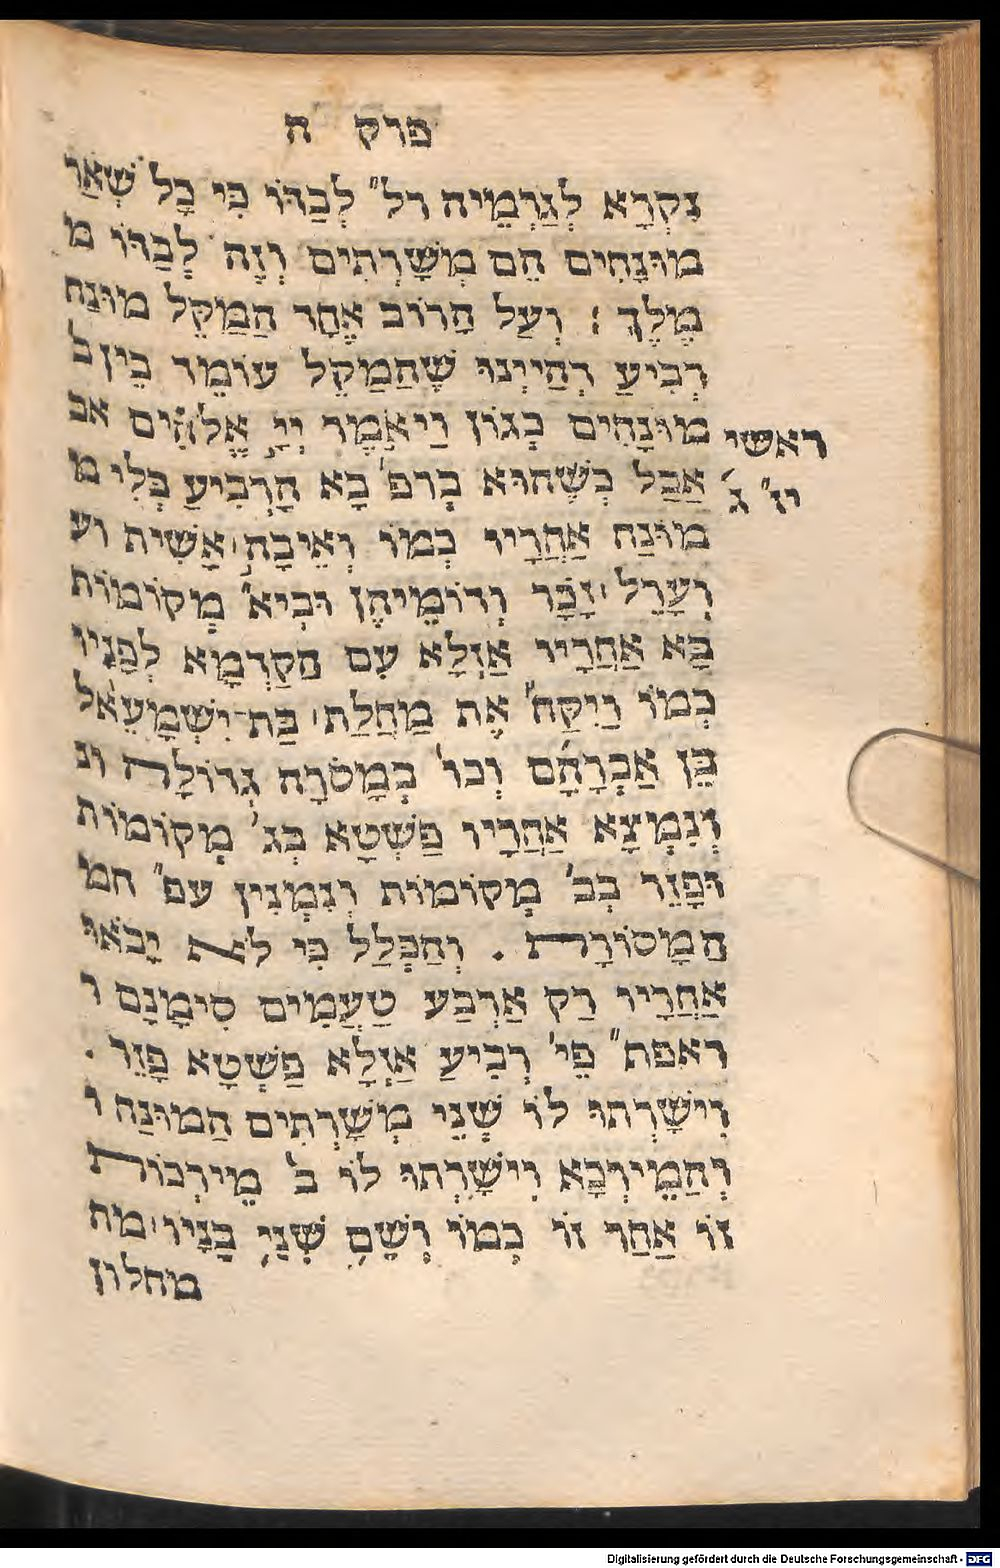 פרק ח
נִקְרָא לְגַרְמֵיהּ רל״ לְבַדּוֹ כִּי כָל שְׁאַר
מוּנָחִים הֵם מְשָׁרְתִים וְזֶה לְבַדּוֹ מ
מֶלֶךְ : וְעַל הָרוֹב אֶחָר הַמַקֵל מוּנַח
רְבִיעַ דְהַיְינוּ שֶׁהַמַקֵל עוֹמֵד בֵּין ב
מוּנָחִים כְּגוֹן וַיֹאמֶר יְיָ אֱלֹהִים אב
ראשי
אֲבָל כְּשֶׁהוּא בְרפ׳ בָּא הָרְבִיעַ בְּלִי מ
יו״ ג׳
מוּנַח אַחֲרָיו כְּמוֹ וְאֵיבָה׀ אָשִׁית וע
וְעָרֵל׀ זָכָר וְדוֹמֵיהֶן וּבְיא״ מְקוֹמוֹת
בָּא אַחֲרָיו אַזְלָא עִם הַקַדְמָא לְפָנָיו
כְּמוֹ וַיִקַח אֶת מַחֲלַת׀ בַּת־יִשְׁמָעֵאל
בֶּן אַבְרָהָם וְכו׳ בְּמָסֹרָה גְדוֹלָה ונ
וְנִמְצָא אַחֲרָיו פַּשְׁטָא בְּג׳ מְקוֹמוֹת
וּפָזֵר בְּב׳ מְקוֹמוֹת וְנִמְנִין עפ״ המ
הַמָסוֹרָת . וְהַכְּלָל כִּי לֹא יָבֹאוּ
אַחֲרָיו רַק אַרְבַּע טְעָמִים סִימָנָם ר
ראפת״ פֵּי׳ רְבִיעַ אַזְלָא פַּשְׁטָא פָּזֵר .
וְיִשָׁרְתוּ לוֹ שְׁנֵי מְשָׁרְתִים הַמוּנַח ו
וְהַמֵירְכָא וְיִשָׁרְתוּ לוֹ ב׳ מֵירְכוֹת
זוֹ אַחַר זוֹ כְּמוֹ וְשֵׁם שְׁנֵי בָנָיו׀ מח
מחלון
Digitalisierung gefördert durch die Deutsche Forschungsgemeinschaft - DFG